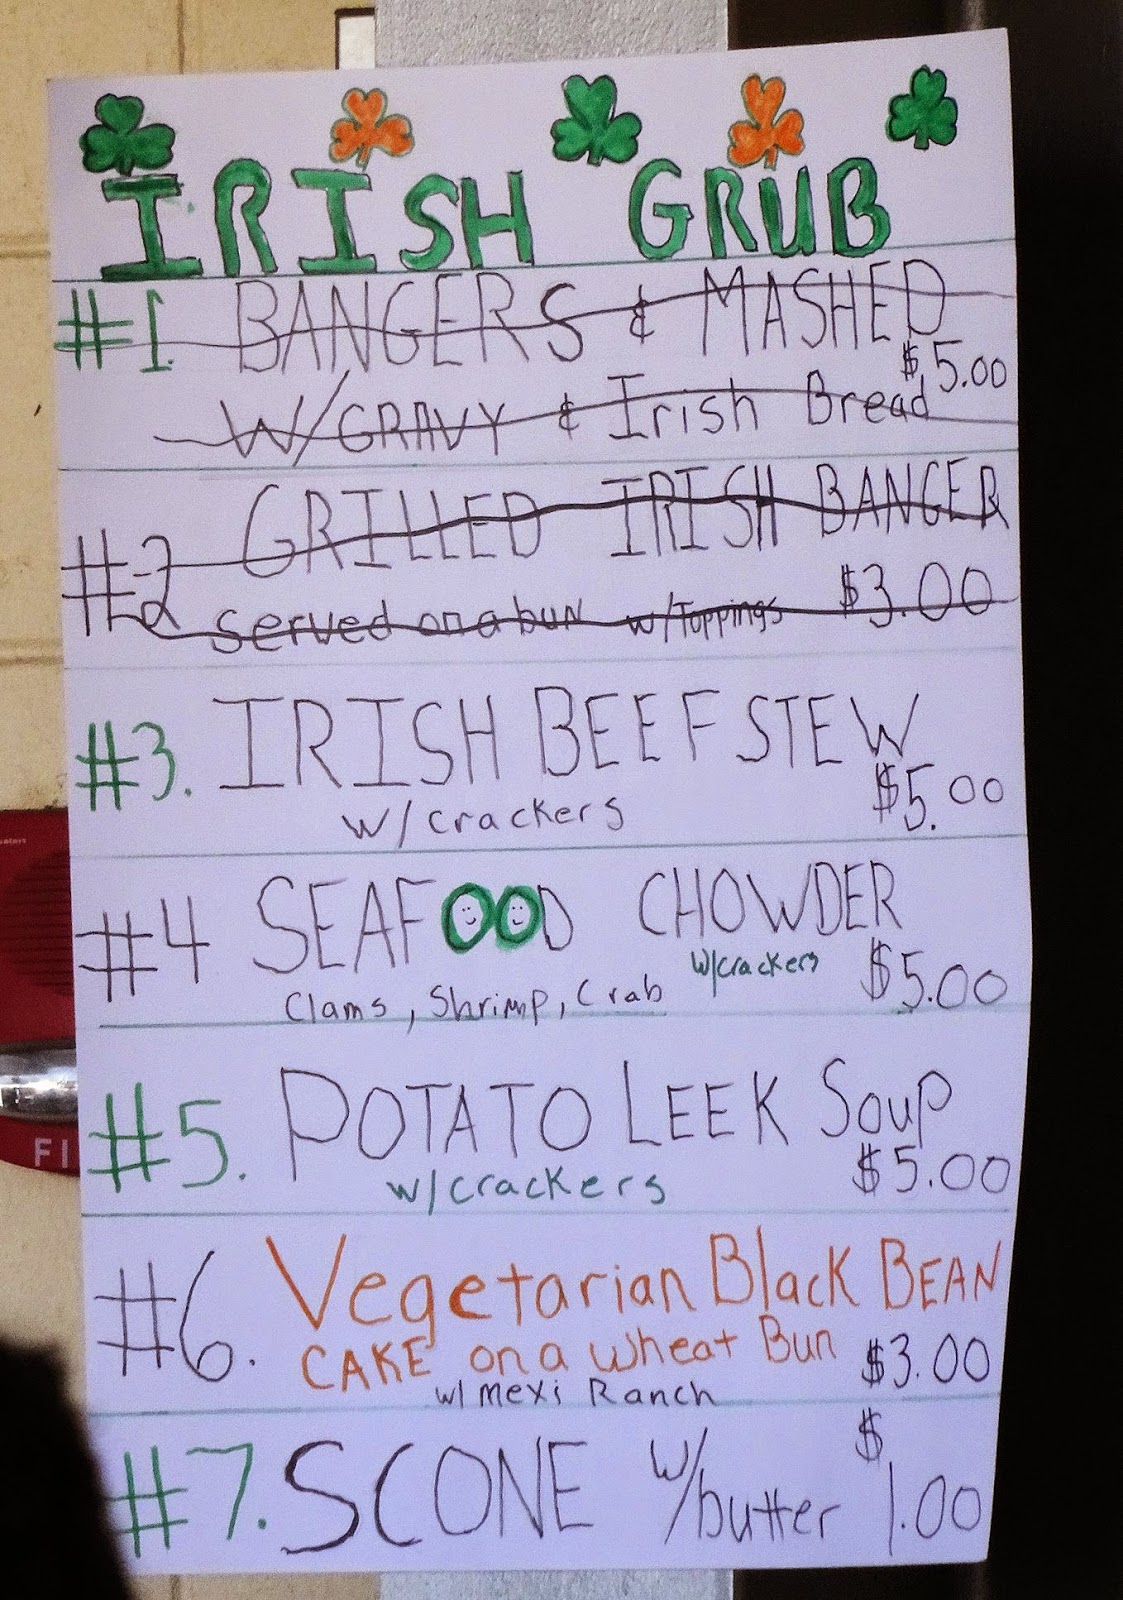 IRISH GRUB
#1. BANGERS & MASHED
$5.00
W/GRAVY & Irish Bread
#2 GRILLED IRISH BANGER
served on a bun w/Toppings $3.00
#3. IRISH BEEF STEW
w/crackers $5.00
#4 SEAFOOD CHOWDER
w/crackers
Clams, Shrimp, Crab $5.00
#5. POTATO LEEK Soup
w/crackers $5.00
#6. Vegetarian Black BEAN
CAKE on a wheat Bun $3.00
w/ mexi Ranch
#7. SCONE w/butter $1.00
FI